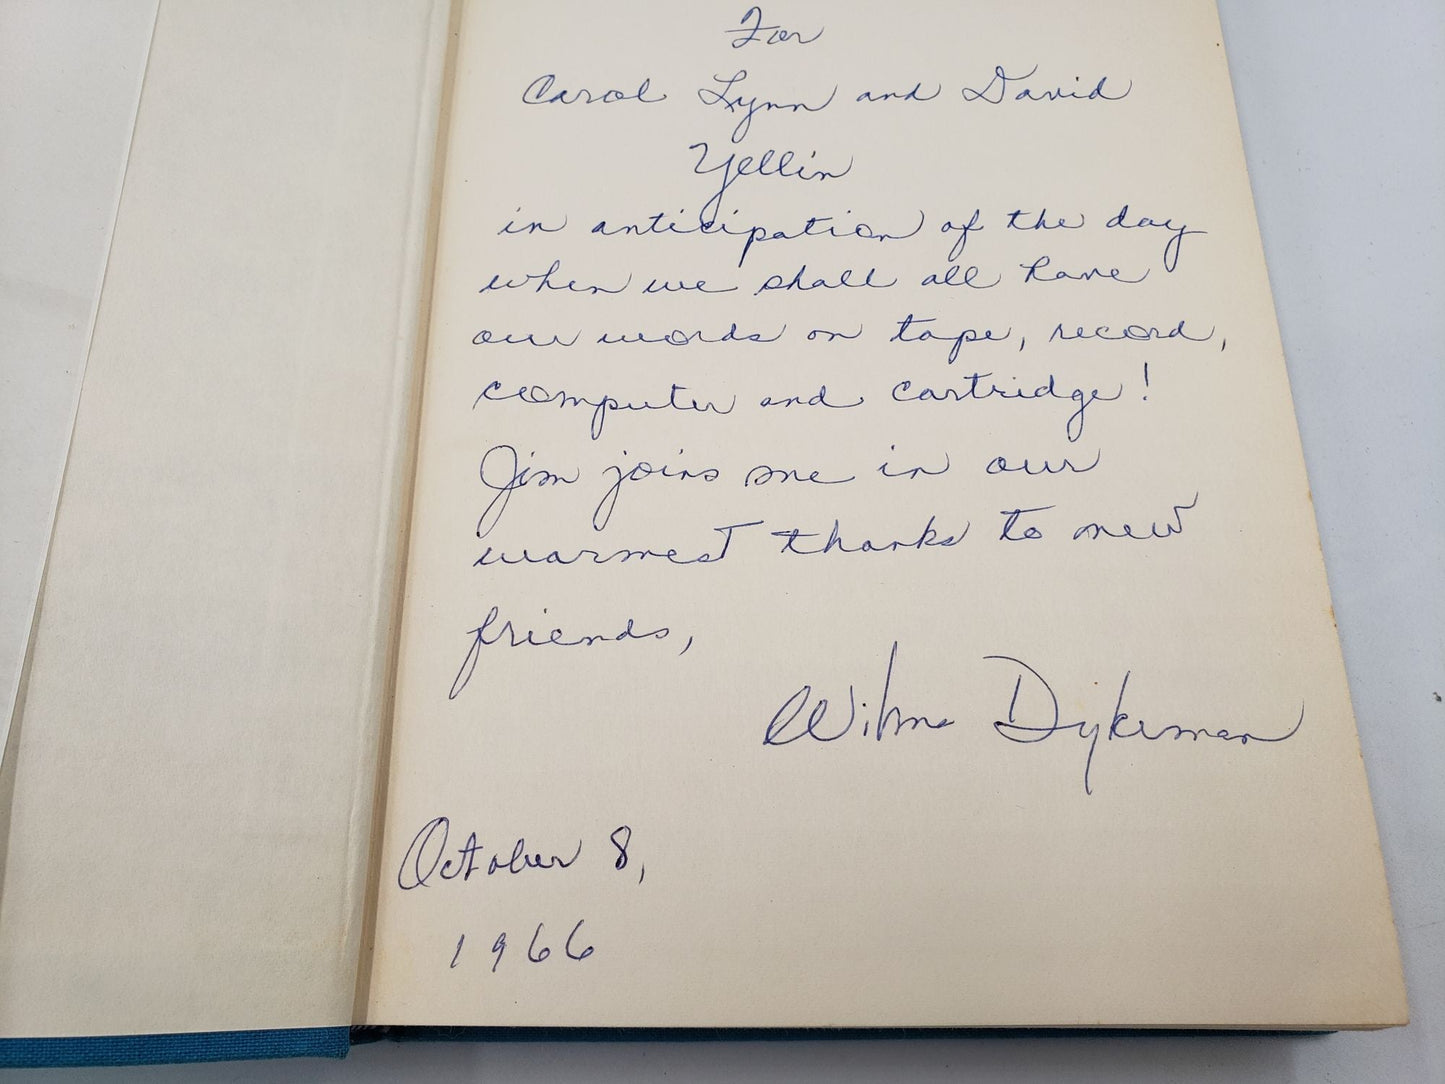 For
Carol Lynn and David
Yellin
in anticipation of the day
when we shall all have
our words on tape, record,
computer and cartridge!
Jim joins me in our
warmest thanks to new
friends,
Wilma Dykeman
October 8,
1966